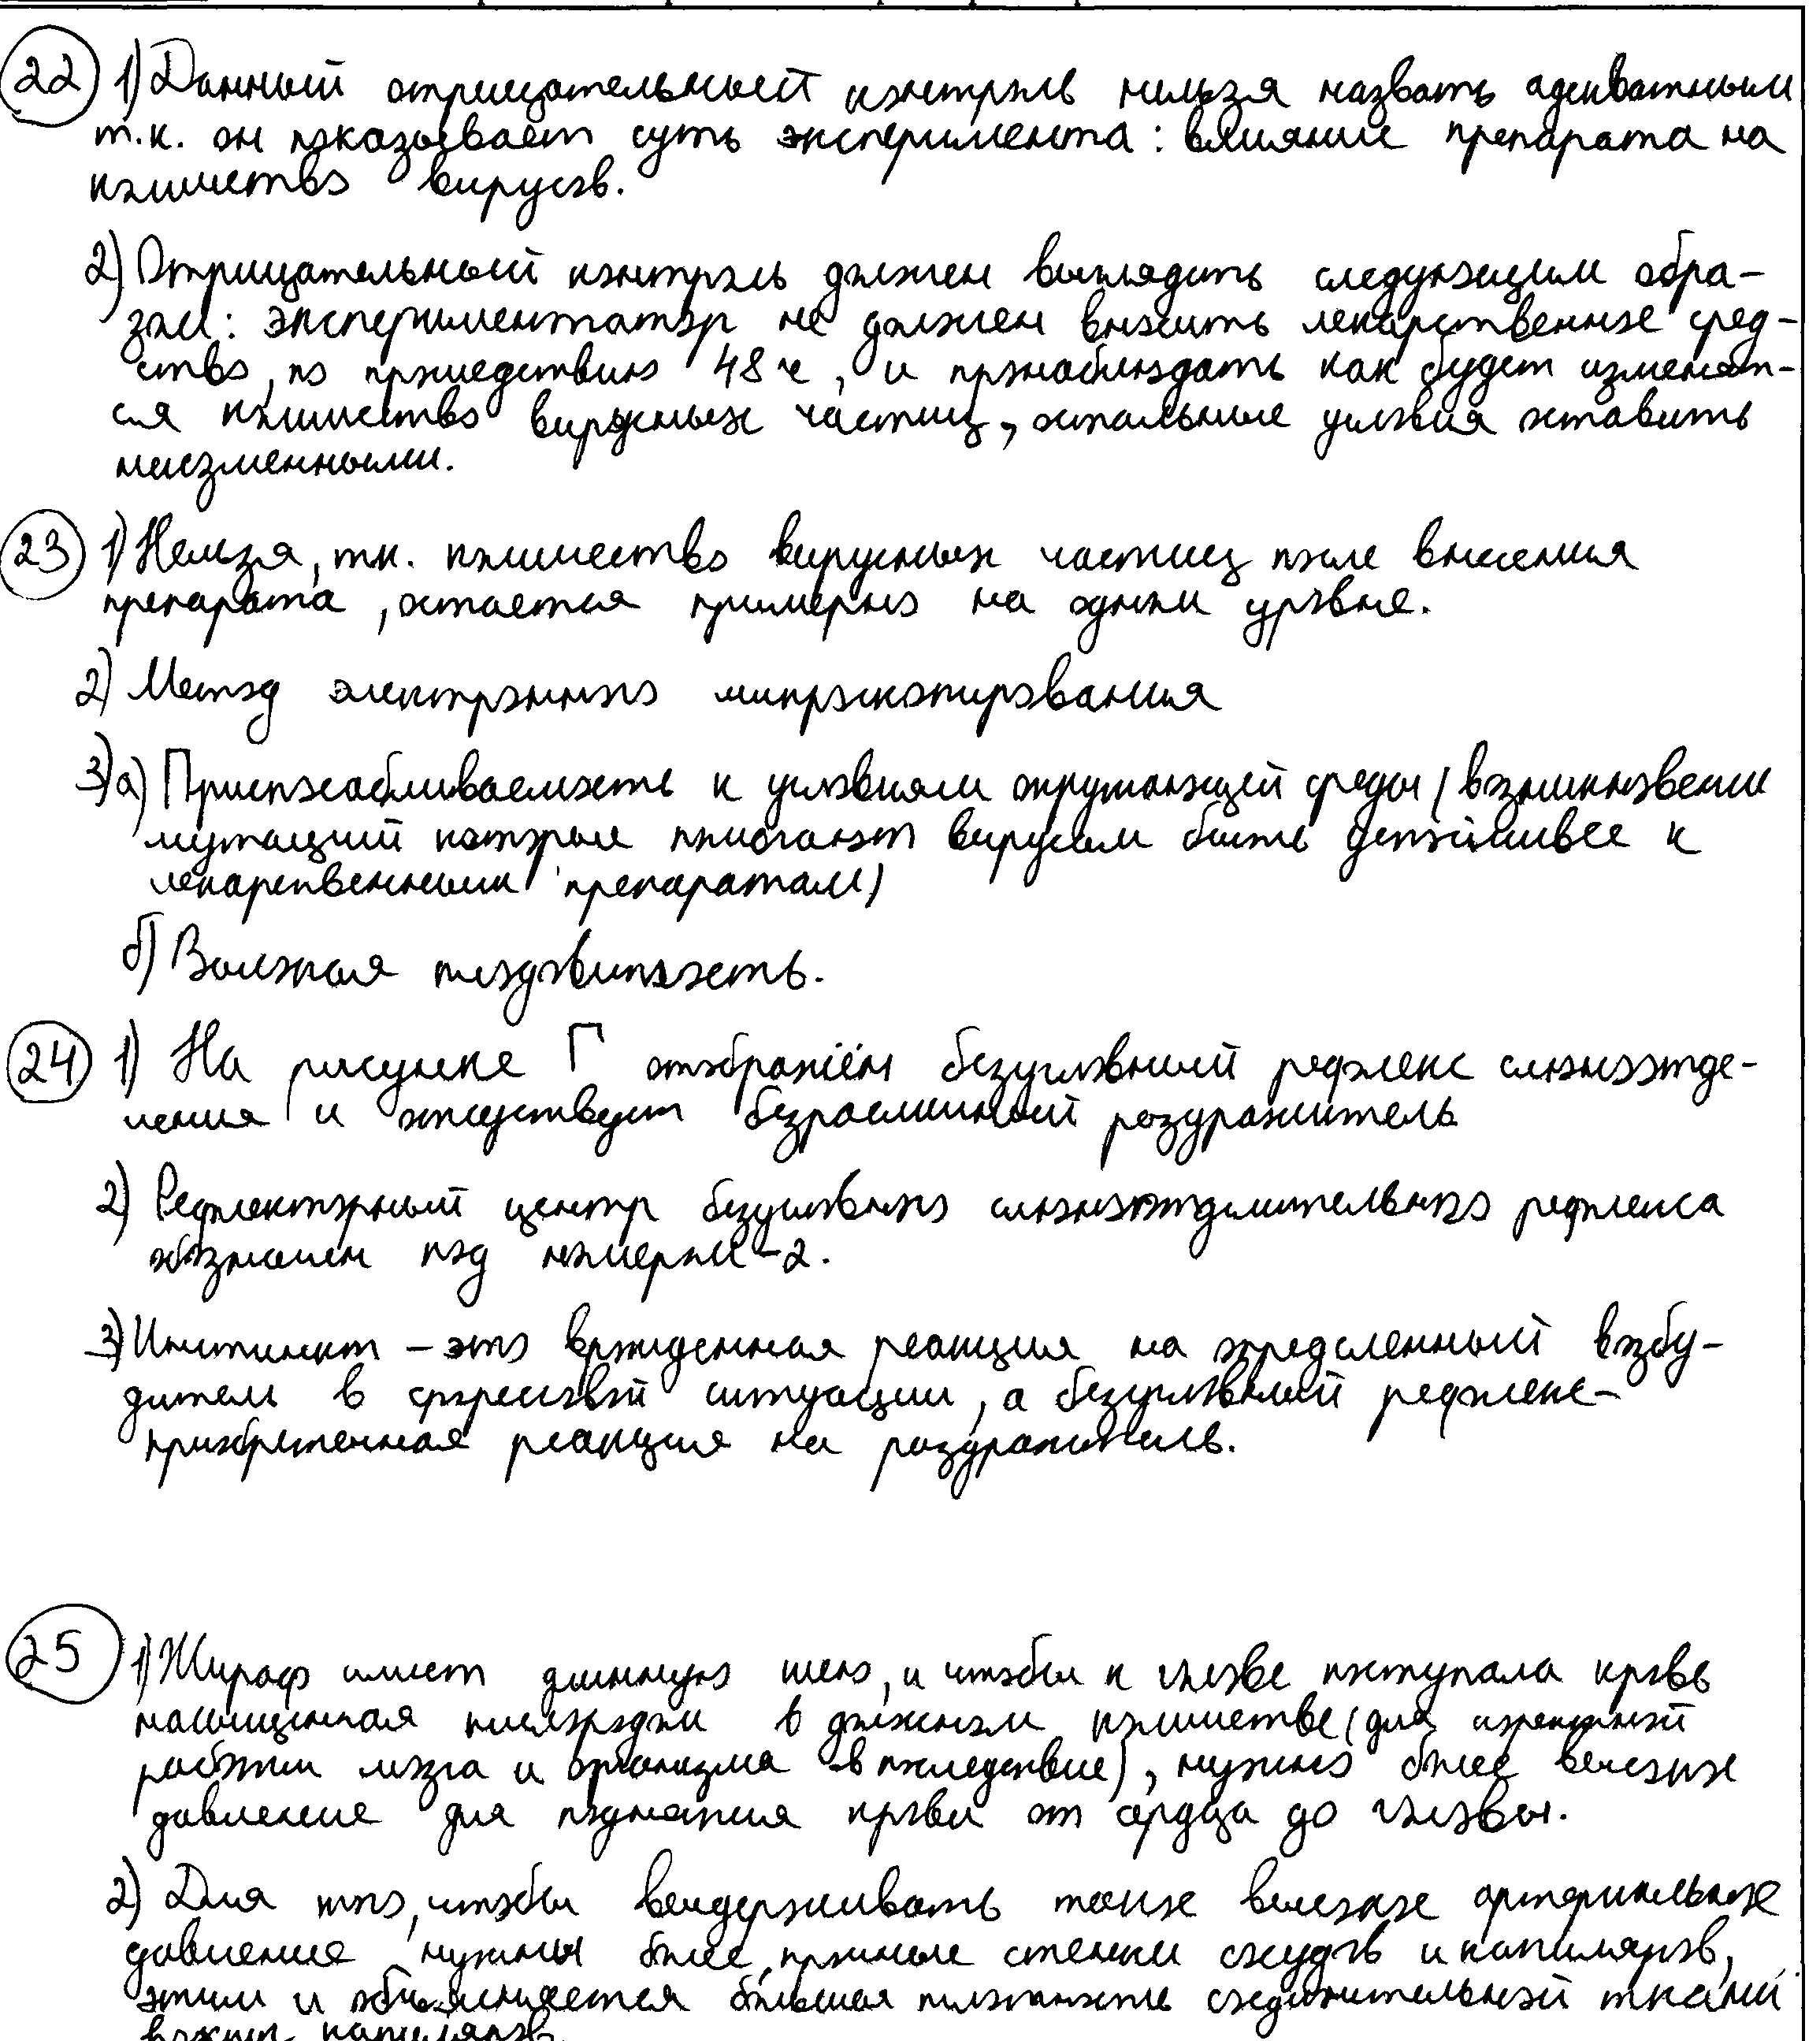 22 1) Данный отрицательный контроль нельзя назвать адекватным
т.к. он показывает суть эксперимента: влияние препарата на
количество вирусов.
2) Отрицательный контроль должен выглядеть следующим обра-
зом: экспериментатор не должен вносить лекарственное сред-
ство, по прошедствию 48 ч, и пронаблюдать как будет изменят-
ся количество вирусных частиц, остальные условия оставить
неизменными.
23 1) Нельзя, т.к. количество вирусных частиц после внесения
препарата, остается примерно на одном уровне.
2) Метод электронного микроскопирования
3) а) Приспосабливаемость к условиям окружающей среды (возникновение
мутаций которые помогают вирусам быть устойчивее к
лекарственным препаратам)
б) Высокая плодовитость.
24 1) На рисунке Г отображён безусловный рефлекс слюноотде-
ления и отсутствует безразличный раздражитель
2) Рефлекторный центр безусловного слюноотделительного рефлекса
обозначен под номером - 2.
3) Инстинкт - это врожденная реакция на определенный возбу-
дитель в ситуации, а безусловный рефлекс -
приобретенная реакция на раздражитель.
25 1) Жираф имеет длинную шею, и чтобы к голове поступала кровь
насыщенная кислородом в должном количестве (для корректной
работы мозга и организма в последствие), нужно более высокое
давление для поднятия крови от сердца до головы.
2) Для того, чтобы выдерживать такое высокое артериальное
давление нужны более прочные стенки сосудов и капиляров,
этим и объясняется большая плотность соединительной ткани
вокруг капиляров.